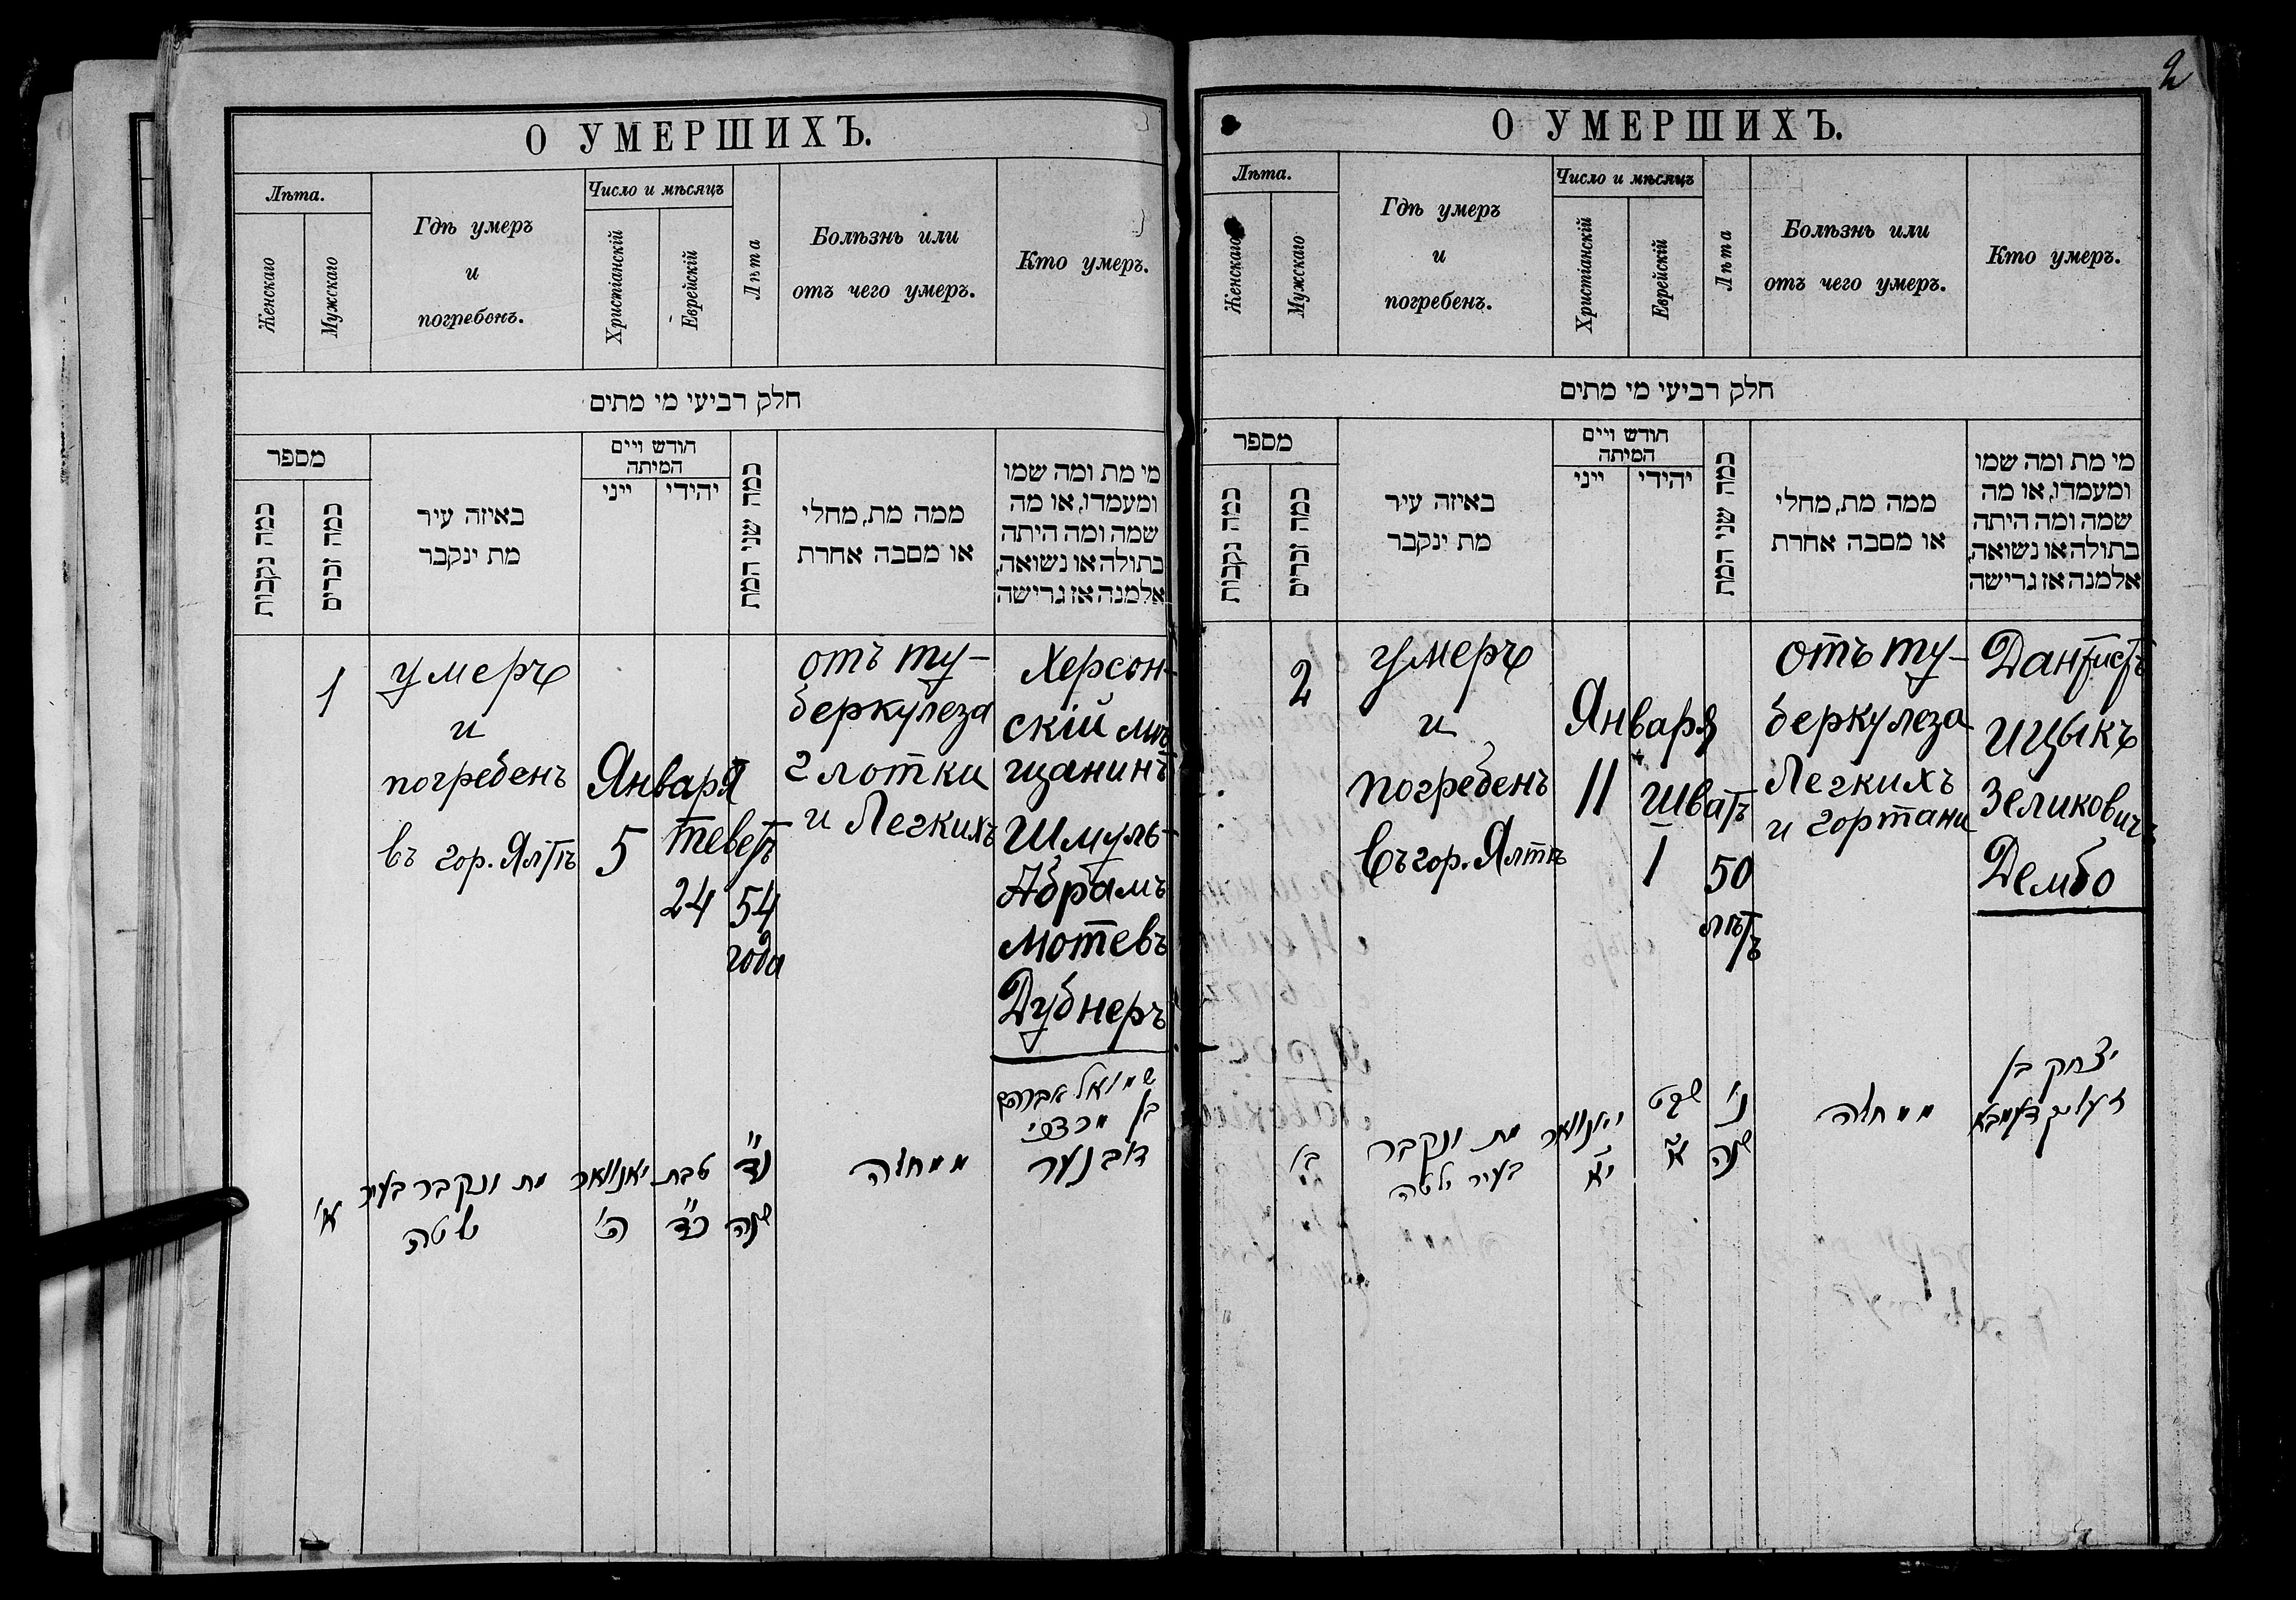 О УМЕРШИХЪ.
Лѣта.
Женскаго
Мужскаго
Гдѣ умеръ
и
погребенъ.
Число и мѣсяцъ
Христіанскій
Еврейскій
Лѣта
Болѣзнь или
отъ чего умеръ.
Кто умеръ.
חלק רביעי מי מתים
מספר
כמה נקבות
כמה זכרים
באיזה עיר
מת ינקבר
חודש ויים
המיתה
ייני
יהידי
כמה שני המת
ממה מת, מחלי
או מסבה אחרת
מי מת ומה שמו
ומעמדו, או מה
שמה ומה היתה
בתולה או נשואה,
אלמנה אז גרישה
1
умеръ
и
погребенъ
въ гор. Ялтѣ
Января
5
тевет
24
54
года
отъ ту-
беркулеза
глотки
и Легкихъ
Херсон-
скій мѣ
щанинъ
Шмуль-
Абрамъ
Мотевъ
Дубнеръ
שמואל אברהם
בן מרדכי
דובנער
ממחלה
נ״ד
שנה
טבת
כ״ד
יאנוואר
ה׳
מת ונקבר בעיר
ילטה
א׳
2
О УМЕРШИХЪ.
Лѣта.
Женскаго
Мужскаго
Гдѣ умеръ
и
погребенъ.
Число и мѣсяцъ
Христіанскій
Еврейскій
Лѣта
Болѣзнь или
отъ чего умеръ.
Кто умеръ.
חלק רביעי מי מתים
מספר
כמה נקבות
כמה זכרים
באיזה עיר
מת ינקבר
חודש ויים
המיתה
ייני
יהידי
כמה שני המת
ממה מת, מחלי
או מסבה אחרת
מי מת ומה שמו
ומעמדו, או מה
שמה ומה היתה
בתולה או נשואה,
אלמנה אז גרישה
2
умеръ
и
погребенъ
въ гор. Ялтѣ
Января
11
Шватъ
1
50
лѣтъ
отъ ту-
беркулеза
Легкихъ
и гортани
Дантистъ
Ицыкъ
Зеликовичъ
Дембо
יצחק בן
זעליק דעמבא
ממחלה
נ׳
שנה
שבט
א׳
יאנוואר
י״א
מת ונקבר
בעיר ילטה
ב׳